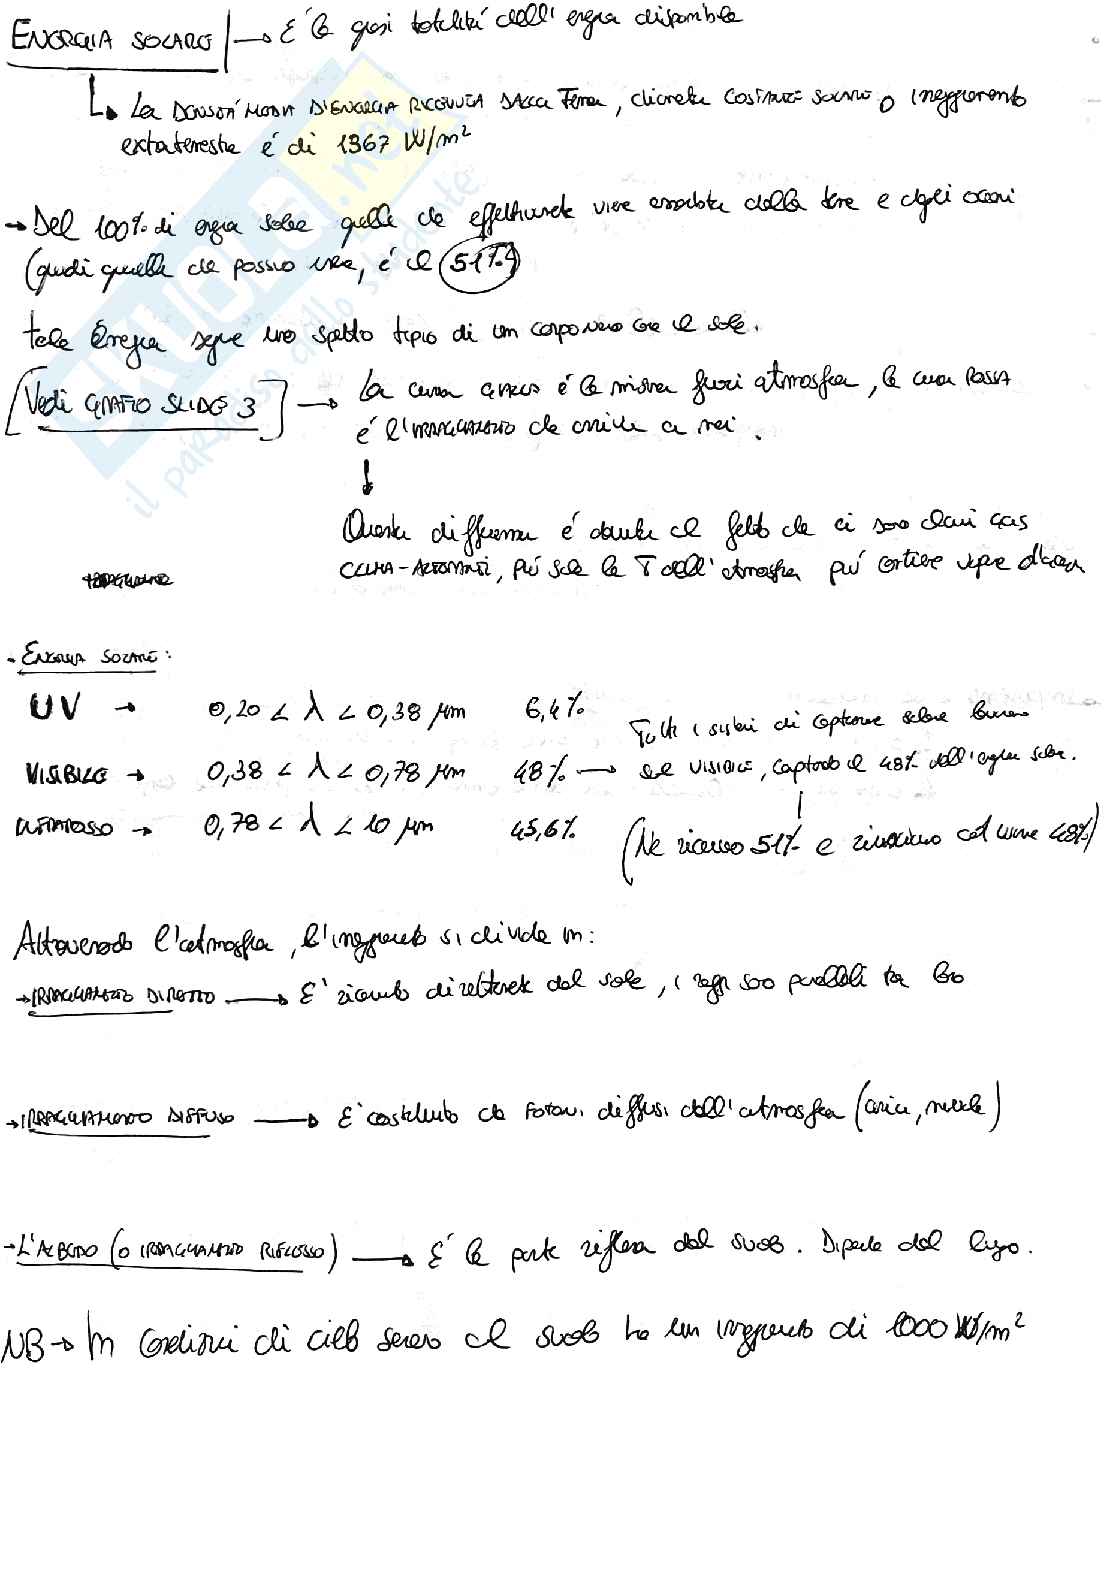 ENERGIA SOLARE → È la quasi totalità dell'energia disponibile
↳ La DENSITÀ MEDIA D'ENERGIA RICEVUTA DALLA Terra, chiamata COSTANTE SOLARE o irraggiamento
extraterrestre è di 1367 W/m²
→ Del 100% di energia solare quella che effettivamente viene assorbita dalla terra e dagli oceani
(quindi quella che posso usare, è il 51%)
tale Energia segue uno spettro tipico di un corpo nero come il sole.
[Vedi GRAFICO SLIDE 3] → La curva GIALLA è la misura fuori atmosfera, la curva ROSSA
è l'IRRAGGIAMENTO che arriva a noi.
↓
Questa differenza è dovuta al fatto che ci sono alcuni GAS
CLIMA-ALTERANTI, più sale la T dell'atmosfera più contiene vapore d'acqua
- ENERGIA SOLARE:
UV → 0,20 < λ < 0,38 μm 6,4%
VISIBILE → 0,38 < λ < 0,78 μm 48% →
INFRAROSSO → 0,78 < λ < 10 μm 45,6%
Tutti i sistemi di captazione solare lavorano
sul VISIBILE, captando il 48% dell'energia solare.
(Ne ricevo 51% e riusciamo ad usare 48%)
Attraversando l'atmosfera, l'irraggiamento si divide in:
→ IRRAGGIAMENTO DIRETTO → È ricevuto direttamente dal sole, i raggi sono paralleli tra loro
→ IRRAGGIAMENTO DIFFUSO → È costituito da FOTONI diffusi dall'atmosfera (aria, nuvole)
→ L'ALBEDO (O IRRAGGIAMENTO RIFLESSO) → È la parte riflessa dal suolo. Dipende dal luogo.
NB → In condizioni di cielo sereno al suolo ho un irraggiamento di 1000 W/m²
SKUOLA.net
il paradiso dello studente